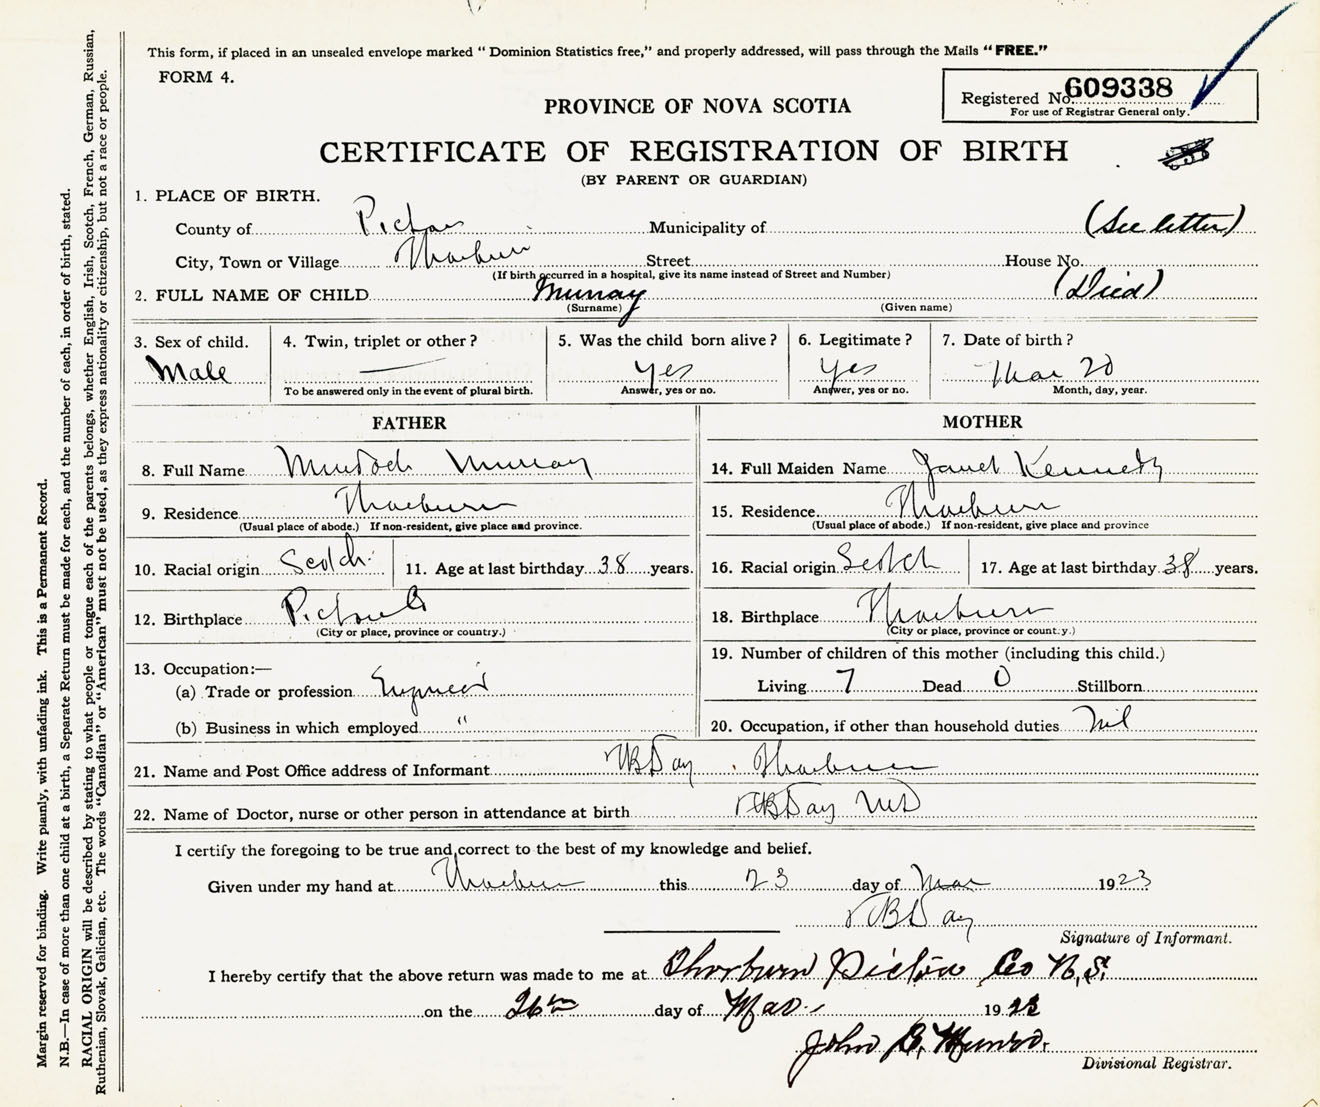 This form, if placed in an unsealed envelope marked “ Dominion Statistics free,” and properly addressed, will pass through the Mails “ FREE.”
FORM 4.
Registered No. 609338
For use of Registrar General only.
PROVINCE OF NOVA SCOTIA
CERTIFICATE OF REGISTRATION OF BIRTH
(BY PARENT OR GUARDIAN)
1. PLACE OF BIRTH.
County of Pictou Municipality of (See letter)
City, Town or Village Thorburn Street House No.
(If birth occurred in a hospital, give its name instead of Street and Number)
2. FULL NAME OF CHILD Murray (Died)
(Surname) (Given name)
3. Sex of child. Male
4. Twin, triplet or other ? —
To be answered only in the event of plural birth.
5. Was the child born alive ? yes
Answer, yes or no.
6. Legitimate ? yes
Answer, yes or no.
7. Date of birth ? Mar 20
Month, day, year.
FATHER
8. Full Name Murdoch Murray
9. Residence Thorburn
(Usual place of abode.) If non-resident, give place and province.
10. Racial origin Scotch 11. Age at last birthday 38 years.
12. Birthplace Pictou
(City or place, province or country.)
13. Occupation:—
(a) Trade or profession Engineer
(b) Business in which employed "
MOTHER
14. Full Maiden Name Janet Kennedy
15. Residence. Thorburn
(Usual place of abode.) If non-resident, give place and province
16. Racial origin Scotch 17. Age at last birthday 38 years.
18. Birthplace Thorburn
(City or place, province or country.)
19. Number of children of this mother (including this child.)
Living 7 Dead 0 Stillborn
20. Occupation, if other than household duties nil
21. Name and Post Office address of Informant VBDay Thorburn
22. Name of Doctor, nurse or other person in attendance at birth VBDay MD
I certify the foregoing to be true and correct to the best of my knowledge and belief.
Given under my hand at Thorburn this 23 day of Mar 1923
VBDay
Signature of Informant.
I hereby certify that the above return was made to me at Thorburn Pictou Co N.S.
on the 26th day of Mar. 1923
John B. Munro.
Divisional Registrar.
Margin reserved for binding. Write plainly, with unfading ink. This is a Permanent Record.
N.B.—In case of more than one child at a birth, a Separate Return must be made for each, and the number of each, in order of birth, stated.
RACIAL ORIGIN will be described by stating to what people or tongue each of the parents belongs, whether English, Irish, Scotch, French, German, Russian,
Ruthenian, Slovak, Galician, etc. The words “Canadian” or “American” must not be used, as they express nationality or citizenship, but not a race or people.